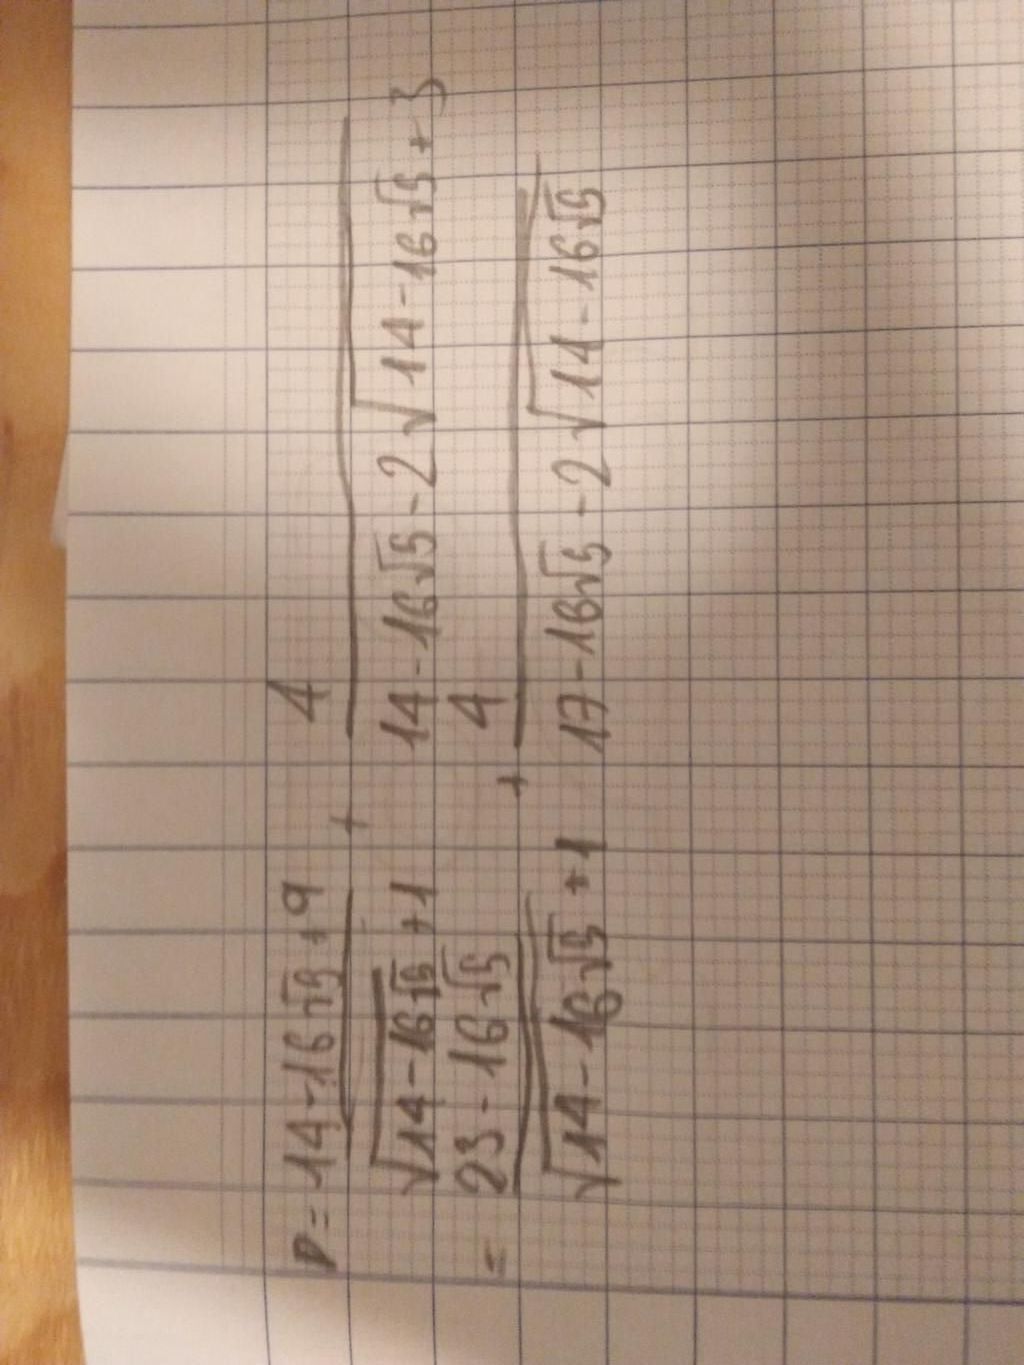 P = 14-16√5+9 / √(14-16√5) +1 + 4 / 14-16√5 -2√(14-16√5) +3
= 23-16√5 / √(14-16√5) +1 + 4 / 17-16√5 -2√(14-16√5)